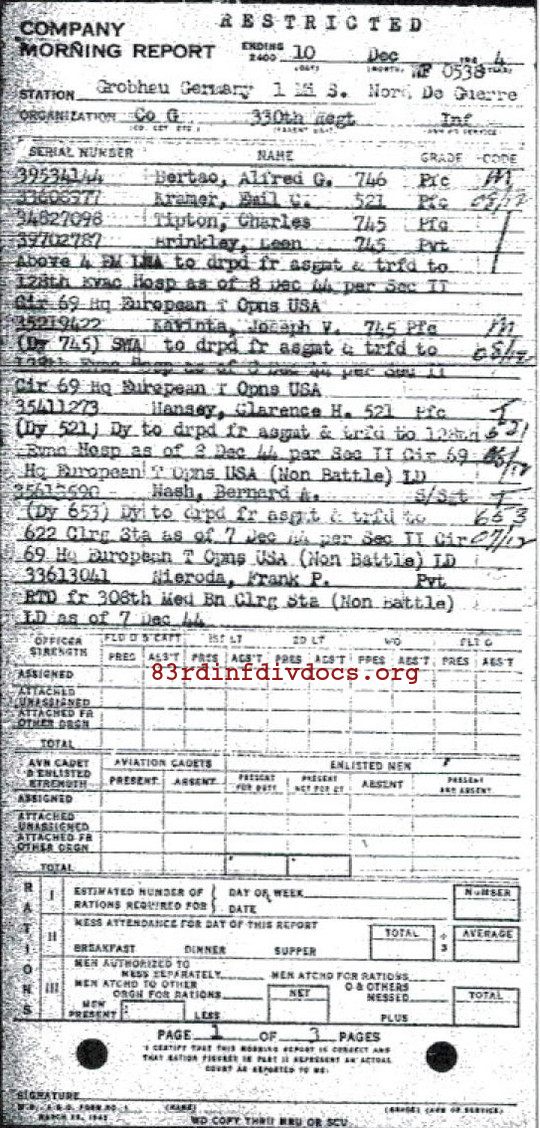 RESTRICTED
COMPANY
MORNING REPORT
ENDING 2400 10 Dec 4
WF 0538
STATION Grobheu Germany 1 Mi S. Nord De Guerre
ORGANIZATION Co G 330th Regt Inf
SERIAL NUMBER NAME GRADE CODE
39534144 Bertao, Alfred G. 746 Pfc M
33608977 Kramer, Emil C. 521 Pfc 08/12
34827098 Tipton, Charles 745 Pfc
39702787 Brinkley, Leen 745 Pvt
Above 4 EM LWA to drpd fr asgmt & trfd to
128th Evac Hosp as of 8 Dec 44 per Sec II
Cir 69 Hq European T Opns USA
35219422 Kavinta, Joseph V. 745 Pfc M
(Dy 745) SWA to drpd fr asgmt & trfd to 08/12
128th Evac Hosp as of 8 Dec 44 per Sec II
Cir 69 Hq European T Opns USA
35411273 Hansey, Clarence H. 521 Pfc T
(Dy 521) Dy to drpd fr asgmt & trfd to 128th 521
Evac Hosp as of 8 Dec 44 per Sec II Cir 69
Hq European T Opns USA (Non Battle) LD
35613690 Nash, Bernard A. S/Sgt T
(Dy 653) Dy to drpd fr asgmt & trfd to 653
622 Clrg Sta as of 7 Dec 44 per Sec II Cir 07/12
69 Hq European T Opns USA (Non Battle) LD
33613041 Nieroda, Frank P. Pvt
RTD fr 308th Med Bn Clrg Sta (Non Battle)
LD as of 7 Dec 44
OFFICER STRENGTH FLD O & CAPT 1ST LT 2D LT WO FLT O
PRES ABS'T PRES ABS'T PRES ABS'T PRES ABS'T PRES ABS'T
83rdinfdivdocs.org
ASSIGNED
ATTACHED UNASSIGNED
ATTACHED FR OTHER ORGN
TOTAL
AVN CADET & ENLISTED STRENGTH AVIATION CADETS ENLISTED MEN
PRESENT ABSENT PRESENT FOR DUTY PRESENT NOT FOR DY ABSENT PRESENT AND ABSENT
ASSIGNED
ATTACHED UNASSIGNED
ATTACHED FR OTHER ORGN
TOTAL
RATIONS
I ESTIMATED NUMBER OF DAY OF WEEK NUMBER
RATIONS REQUIRED FOR DATE
II MESS ATTENDANCE FOR DAY OF THIS REPORT TOTAL ÷ 3 AVERAGE
BREAKFAST DINNER SUPPER
III MEN AUTHORIZED TO MESS SEPARATELY MEN ATCHD FOR RATIONS
MEN ATCHD TO OTHER ORGN FOR RATIONS NET O & OTHERS MESSED TOTAL
MEN PRESENT LESS PLUS
PAGE 1 OF 3 PAGES
I CERTIFY THAT THIS MORNING REPORT IS CORRECT AND
THAT RATION FIGURES IN PART II REPRESENT AN ACTUAL
COUNT AS REPORTED TO ME:
SIGNATURE
W.D., A.G.O. FORM NO. 1 (NAME) (GRADE) (ARM OR SERVICE)
MARCH 22, 1943
WD COPY THRU MRU OR SCU